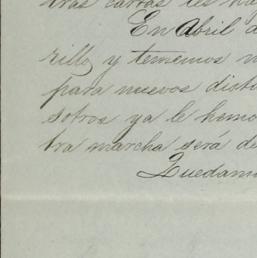 tras cartas les ha
En Abril d
rillo, y tememos n
para nuevos dist
sotros ya le hemo
tra marcha será de
Quedamo